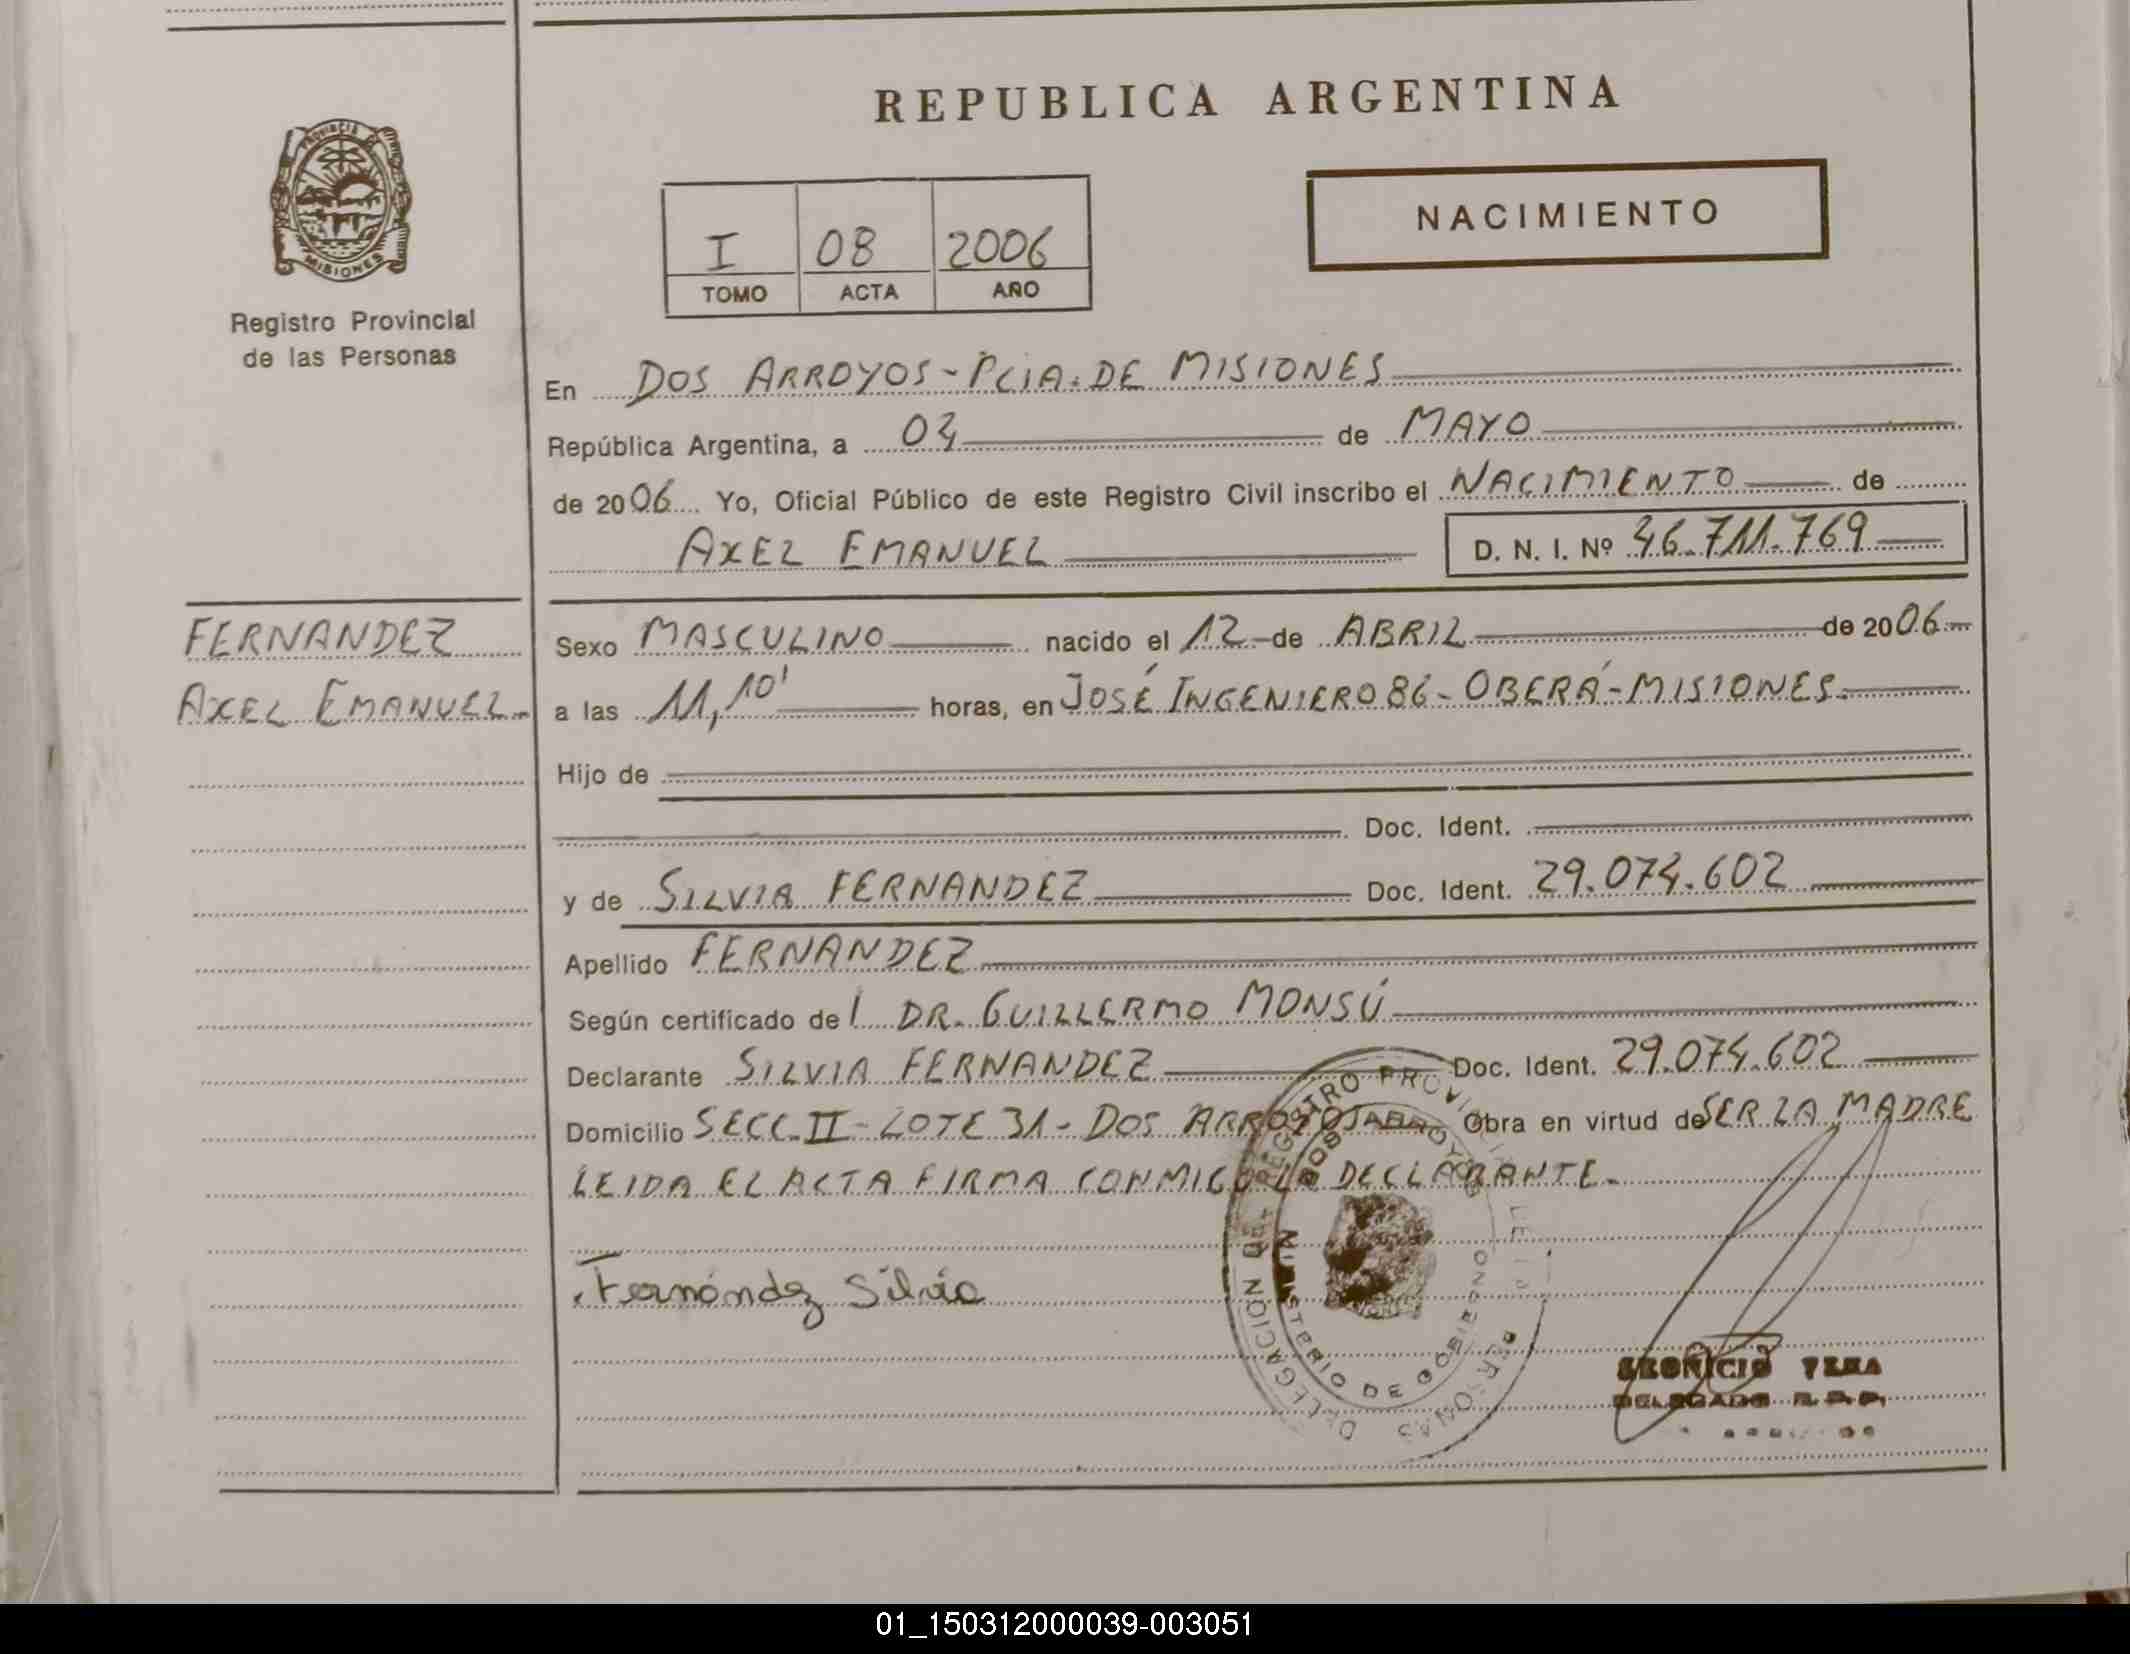 REPUBLICA ARGENTINA
NACIMIENTO
I 08 2006
TOMO ACTA AÑO
PROVINCIA DE MISIONES
Registro Provincial
de las Personas
En DOS ARROYOS - PCIA. DE MISIONES
República Argentina, a 04 de MAYO
de 2006 Yo, Oficial Público de este Registro Civil inscribo el NACIMIENTO de
AXEL EMANUEL D. N. I. Nº 46.711.769
FERNANDEZ
AXEL EMANUEL
Sexo MASCULINO nacido el 12 de ABRIL de 2006
a las 11,10' horas, en JOSÉ INGENIERO 86 - OBERÁ - MISIONES
Hijo de
Doc. Ident.
y de SILVIA FERNANDEZ Doc. Ident. 29.074.602
Apellido FERNANDEZ
Según certificado del DR. GUILLERMO MONSÚ
Declarante SILVIA FERNANDEZ Doc. Ident. 29.074.602
Domicilio SECC. II - LOTE 31 - DOS ARROYOS Obra en virtud de SER LA MADRE
LEIDA EL ACTA FIRMA CONMIGO LA DECLARANTE.
Fernández Silvia
DELEGACION DEL REGISTRO PROVINCIAL DE LAS PERSONAS
DOS ARROYOS
MINISTERIO DE GOBIERNO
DELEGADO R.P.P.
01_150312000039-003051